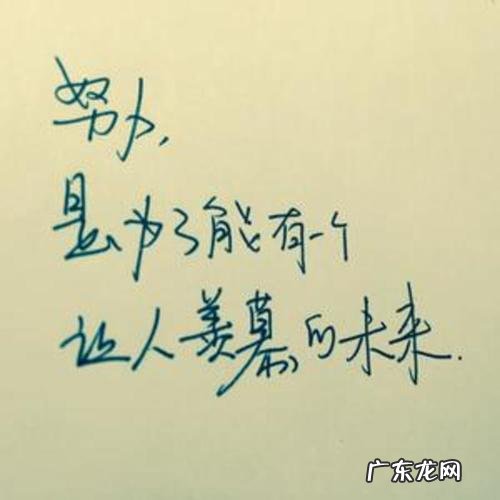 努力,
是为了能有一个
让人羡慕的未来.
广东龙网